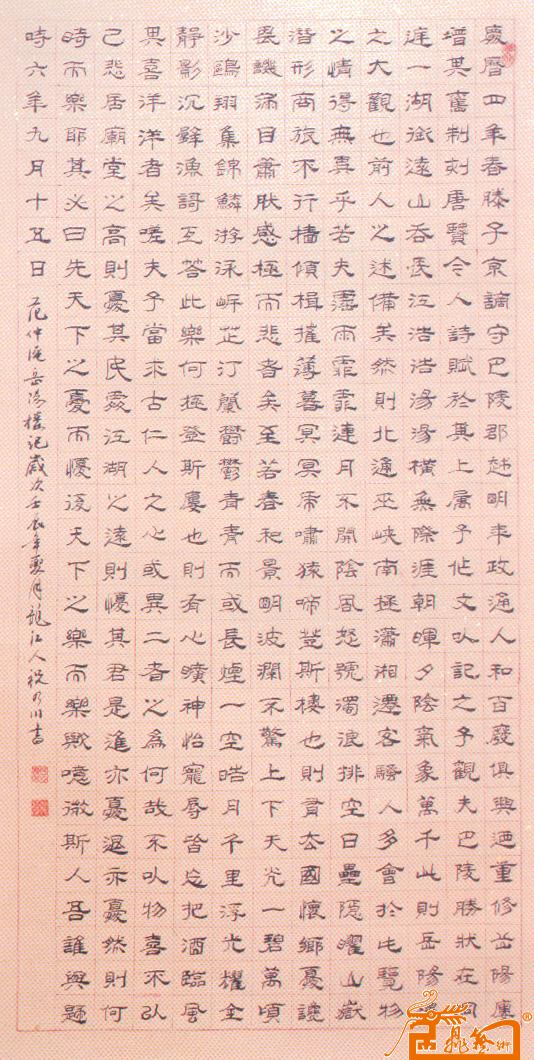 慶曆四年春滕子京謫守巴陵郡越明年政通人和百廢俱興迺重修岳陽廔
增其舊制刻唐賢今人詩賦於其上属予作文以記之予觀夫巴陵勝狀在洞
庭一湖銜遠山吞長江浩浩湯湯橫無際涯朝暉夕陰氣象萬千此則岳陽樓
之大觀也前人之述備矣然則北通巫峽南極瀟湘遷客騷人多會於此覽物
之情得無異乎若夫霪雨霏霏連月不開陰風怒號濁浪排空日星隱曜山嶽
潛形商旅不行檣傾楫摧薄暮冥冥虎嘯猿啼登斯樓也則有去國懷鄉憂讒
畏譏滿目蕭然感極而悲者矣至若春和景明波瀾不驚上下天光一碧萬頃
沙鷗翔集錦鱗游泳岸芷汀蘭鬱鬱青青而或長煙一空皓月千里浮光耀金
靜影沉璧漁謌互答此樂何極登斯廔也則有心曠神怡寵辱皆忘把酒臨風
其喜洋洋者矣嗟夫予嘗求古仁人之心或異二者之為何哉不以物喜不以
己悲居廟堂之高則憂其民處江湖之遠則懮其君是進亦憂退亦憂然則何
時而樂耶其必曰先天下之憂而懮後天下之樂而樂歟噫微斯人吾誰與歸
時六年九月十五日
范仲淹岳陽樓記歲次壬辰年夏月龍江人祝乃川書